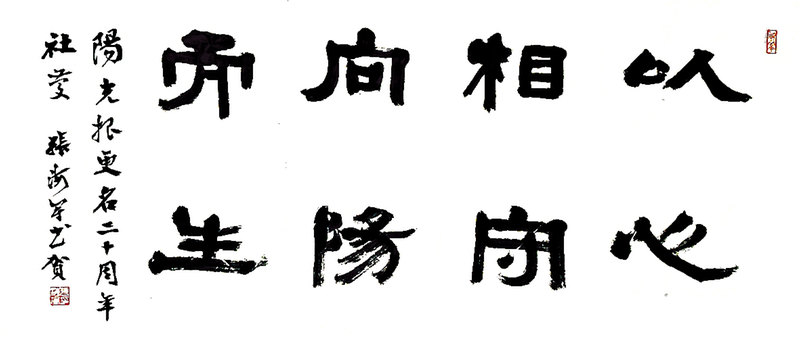 以心
相守
向陽
而生
陽光报更名二十周年
社慶 張海军书贺